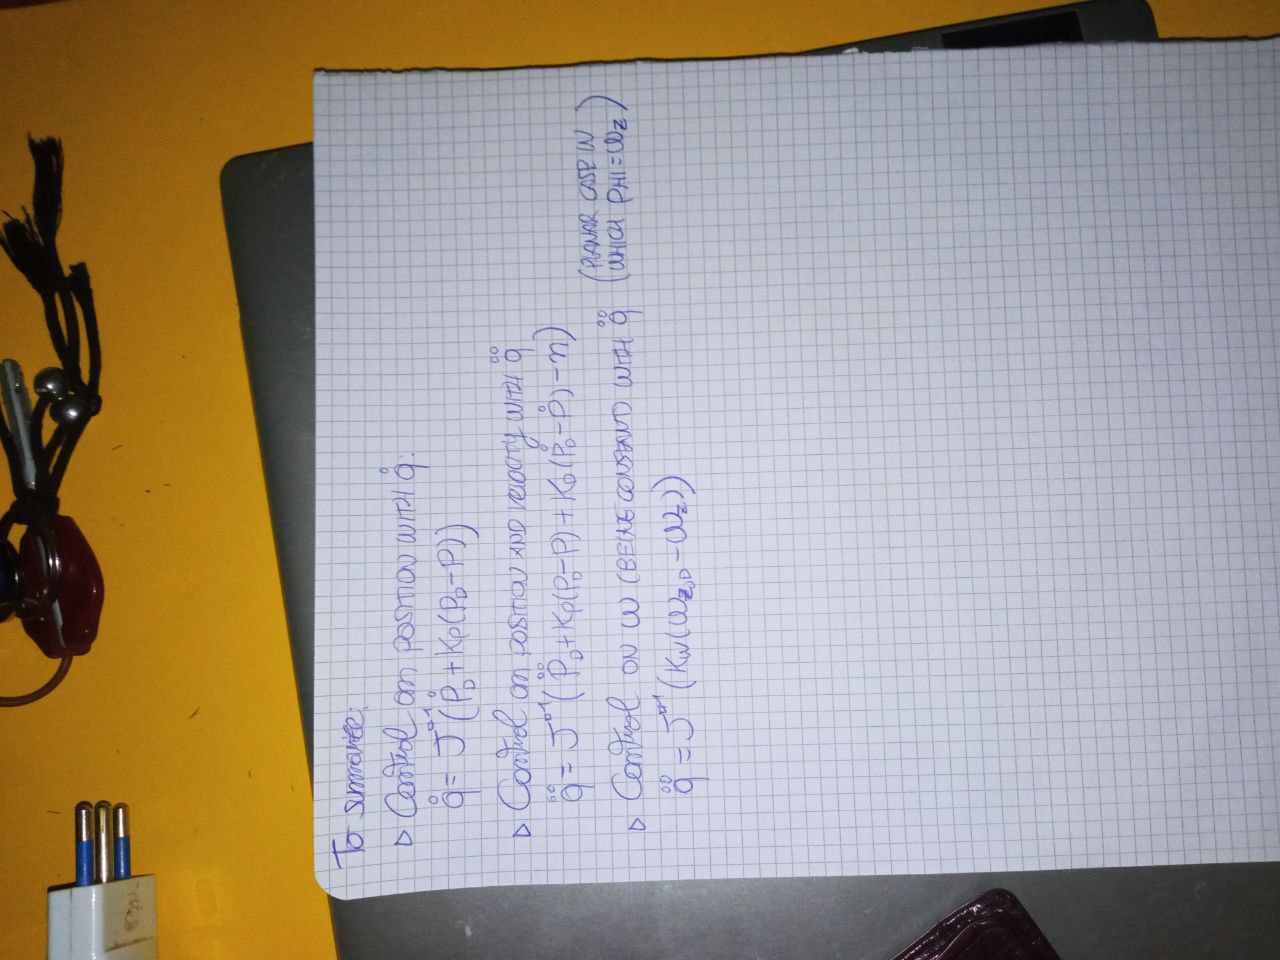 To summarize:
▷ Control on position with q̇:
q̇ = J⁻¹(ṗ_D + Kp(P_D - P))
▷ Control on position and velocity with q̈
q̈ = J⁻¹(p̈_D + Kp(P_D - P) + K_D(ṗ_D - ṗ) - n)
▷ Control on W (BEING CONSTANT) WITH q̈ (PLANAR CASE IN
WHICH PHI = W_z)
q̈ = J⁻¹(K_W(W_z,D - W_z))